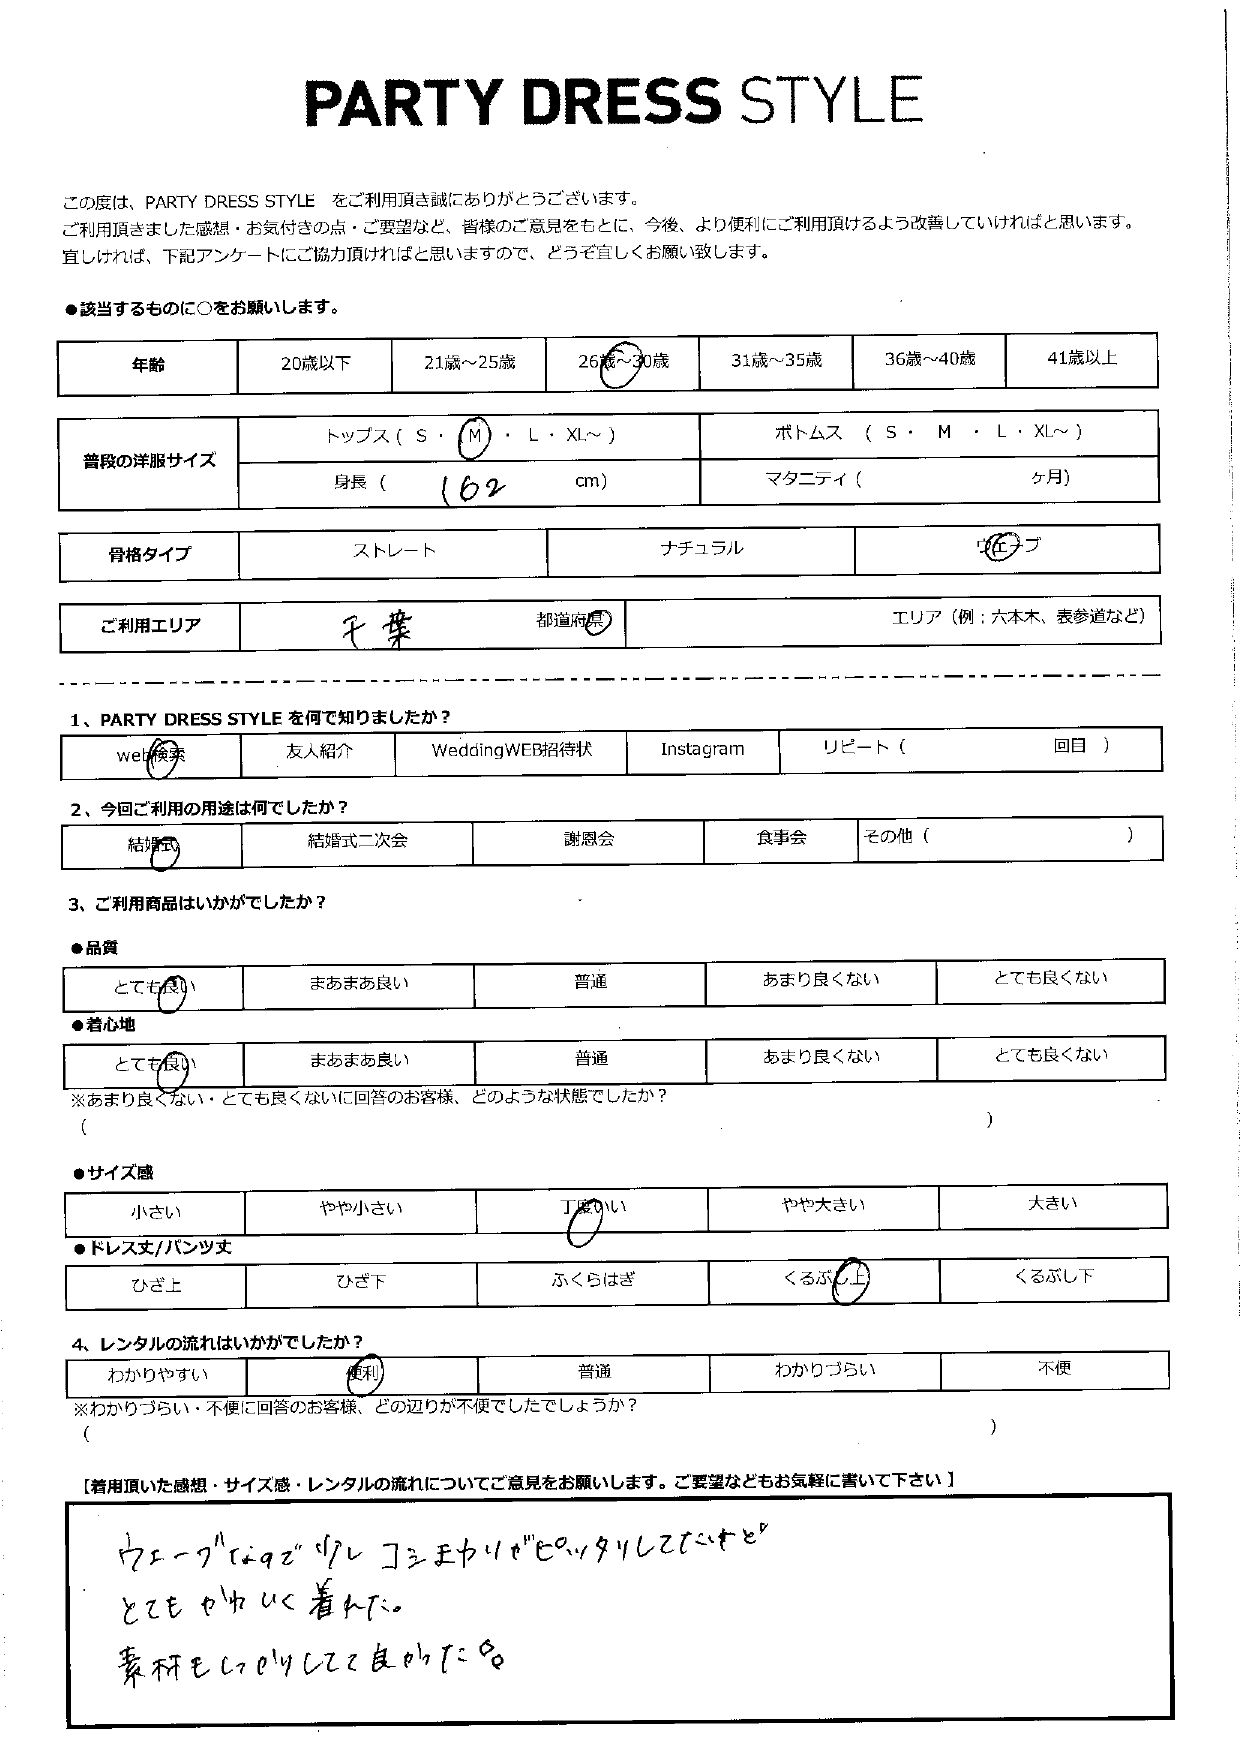 PARTY DRESS STYLE
この度は、PARTY DRESS STYLE をご利用頂き誠にありがとうございます。
ご利用頂きました感想・お気付きの点・ご要望など、皆様のご意見をもとに、今後、より便利にご利用頂けるよう改善していければと思います。
宜しければ、下記アンケートにご協力頂ければと思いますので、どうぞ宜しくお願い致します。
●該当するものに○をお願いします。
年齢 20歳以下 21歳～25歳 26歳～30歳 31歳～35歳 36歳～40歳 41歳以上
普段の洋服サイズ
トップス ( S ・ M ・ L ・ XL～ ) ボトムス ( S ・ M ・ L ・ XL～ )
身長 ( 162 cm) マタニティ ( ヶ月)
骨格タイプ ストレート ナチュラル ウェーブ
ご利用エリア 千葉 都道府県 エリア（例；六本木、表参道など）
1、PARTY DRESS STYLE を何で知りましたか？
web検索 友人紹介 WeddingWEB招待状 Instagram リピート ( 回目 )
2、今回ご利用の用途は何でしたか？
結婚式 結婚式二次会 謝恩会 食事会 その他 ( )
3、ご利用商品はいかがでしたか？
●品質
とても良い まあまあ良い 普通 あまり良くない とても良くない
●着心地
とても良い まあまあ良い 普通 あまり良くない とても良くない
※あまり良くない・とても良くないに回答のお客様、どのような状態でしたか？
( )
●サイズ感
小さい やや小さい 丁度いい やや大きい 大きい
●ドレス丈/パンツ丈
ひざ上 ひざ下 ふくらはぎ くるぶし上 くるぶし下
4、レンタルの流れはいかがでしたか？
わかりやすい 便利 普通 わかりづらい 不便
※わかりづらい・不便に回答のお客様、どの辺りが不便でしたでしょうか？
( )
【着用頂いた感想・サイズ感・レンタルの流れについてご意見をお願いします。ご要望などもお気軽に書いて下さい 】
ウェーブなので少しコシまわりがピッタリしてたけど
とてもかわいく着れた。
素材もしっかりしてて良かった。